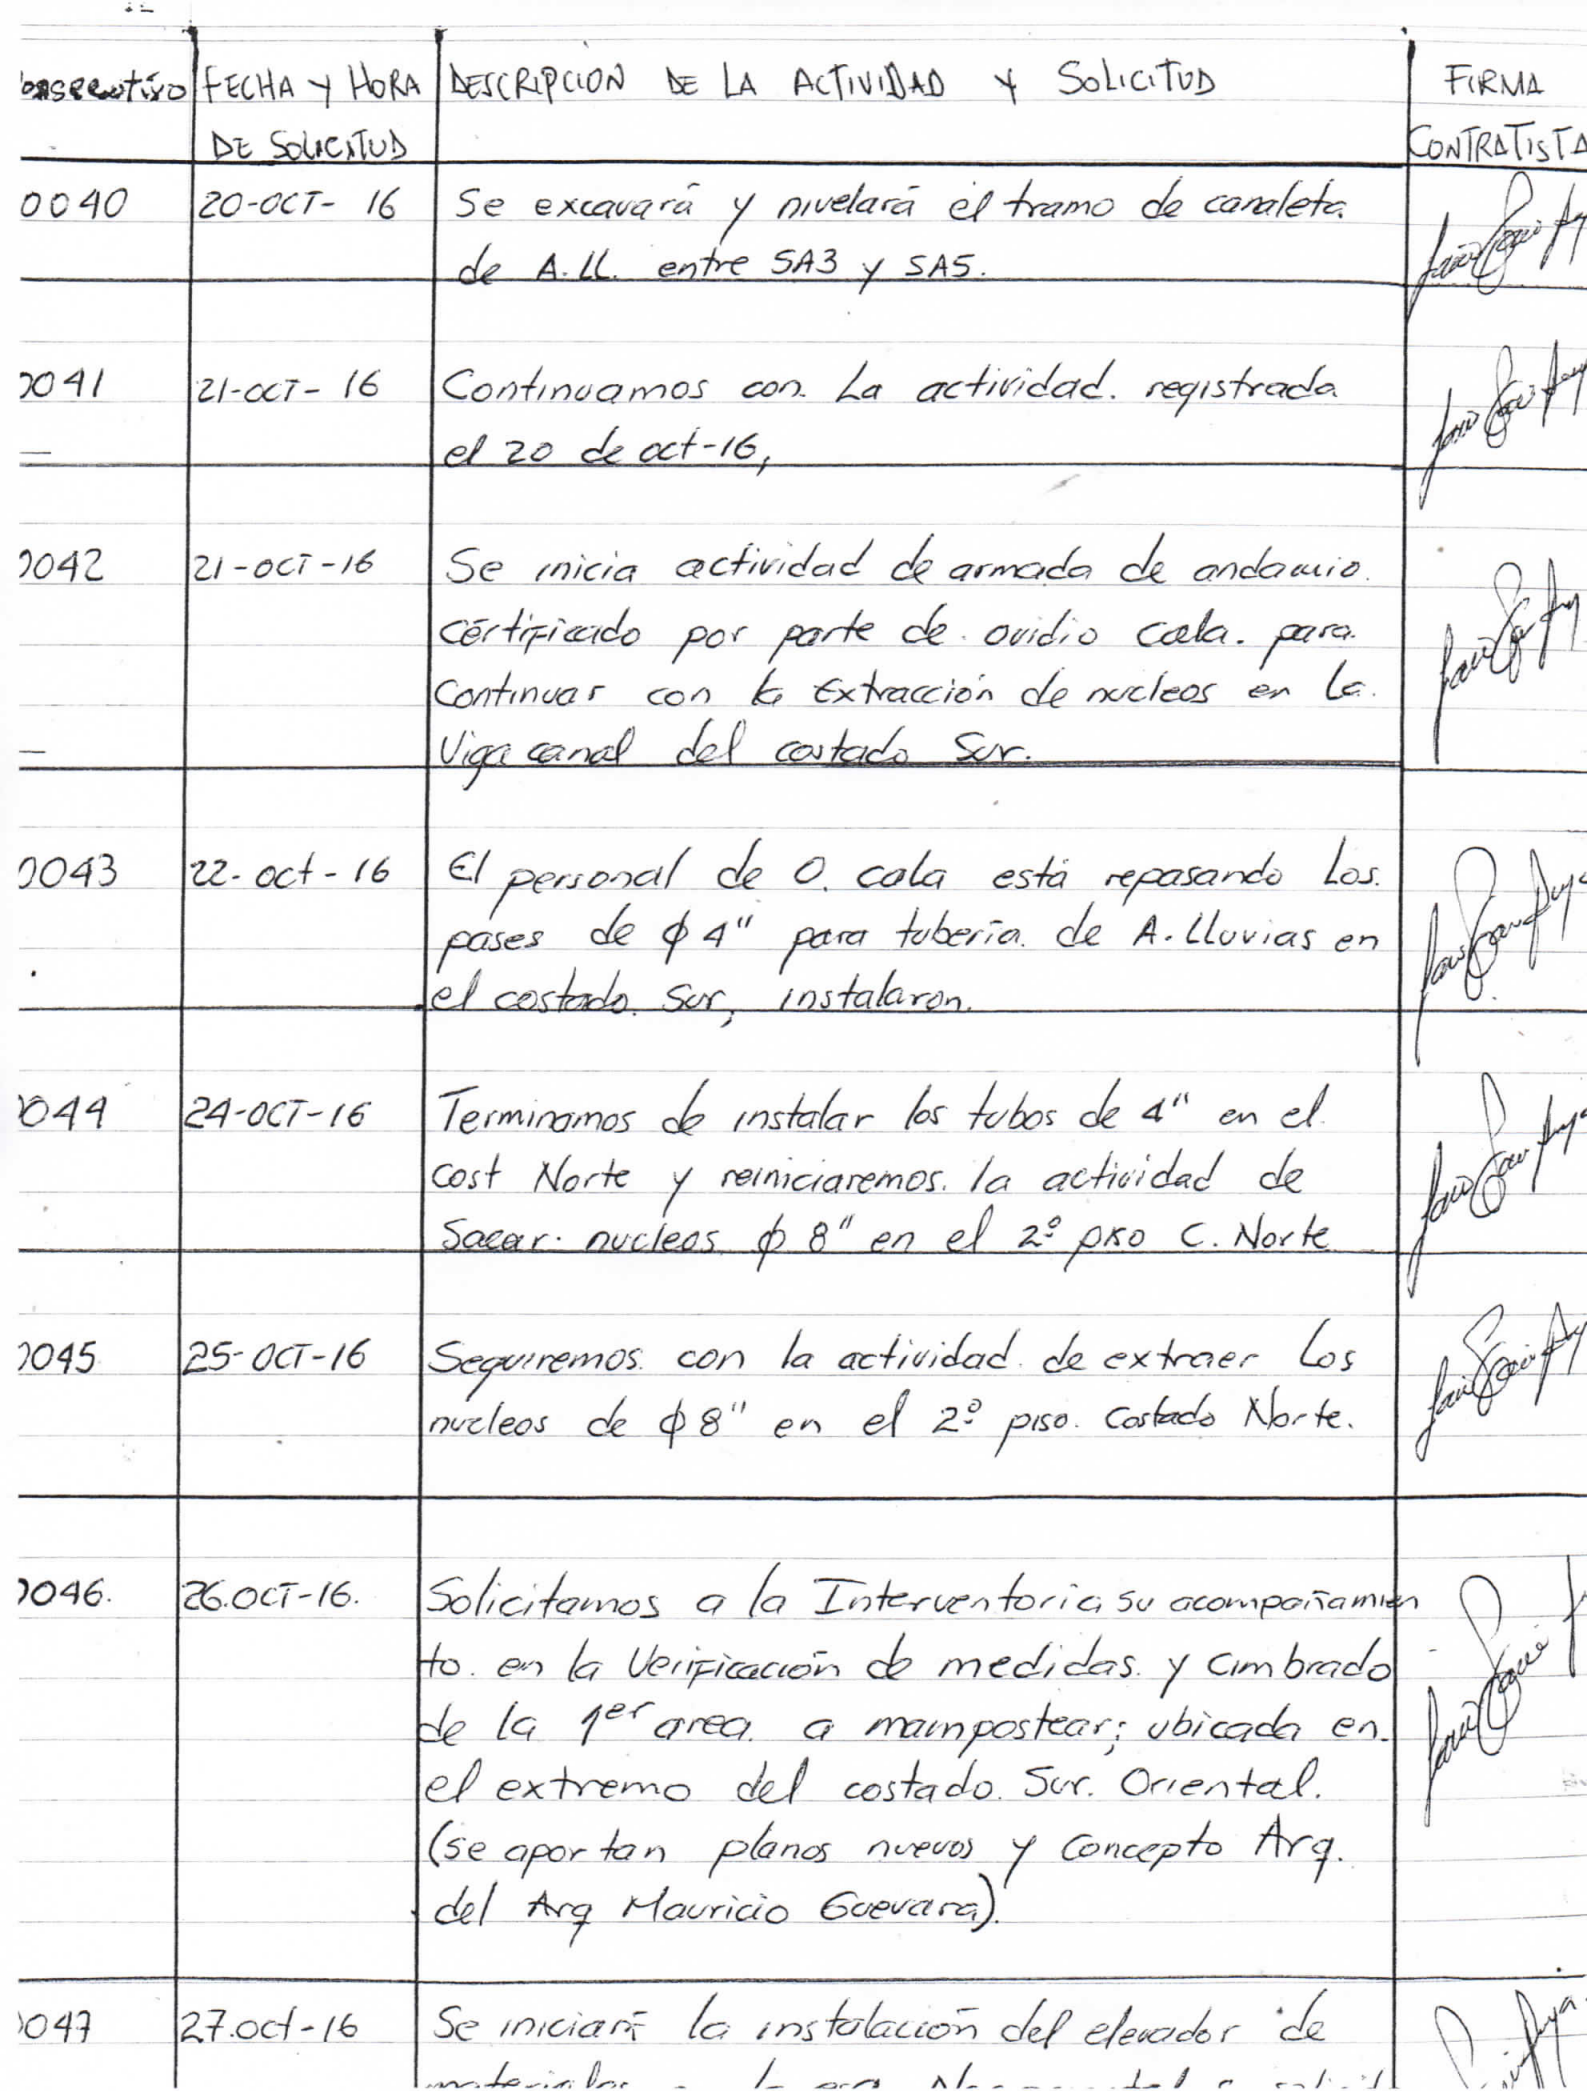 FECHA Y HORA DESCRIPCION DE LA ACTIVIDAD Y SOLICITUD FIRMA
DE SOLICITUD CONTRATISTA
0040 20-OCT-16 Se excavará y nivelará el tramo de canaleta
de A.LL. entre SA3 y SA5.
0041 21-OCT-16 Continuamos con La actividad. registrada
el 20 de oct-16,
0042 21-OCT-16 Se inicia actividad de armada de andamio.
Certificado por parte de ovidio cala. para.
Continuar con la Extracción de nucleos en la.
Viga canal del costado Sur.
0043 22-oct-16 El personal de O. cala está repasando Los.
pases de ϕ 4" para tubería. de A. Lluvias en
el costado Sur, instalaron.
0044 24-OCT-16 Terminamos de instalar los tubos de 4" en el
cost Norte y reiniciaremos. la actividad de
Sacar. nucleos ϕ 8" en el 2º piso C. Norte
0045 25-OCT-16 Seguiremos con la actividad. de extraer Los
nucleos de ϕ 8" en el 2º piso. Costado Norte.
0046. 26.OCT-16. Solicitamos a la Interventoria su acompañamien
to. en la Verificación de medidas. y cimbrado
de la 1er area. a mampostear; ubicada en.
el extremo del costado. Sur. Oriental.
(se aportan planos nuevos y Concepto Arq.
del Arq Mauricio Guevara).
0047 27.oct-16 Se iniciará la instalación del elevador de
materiales